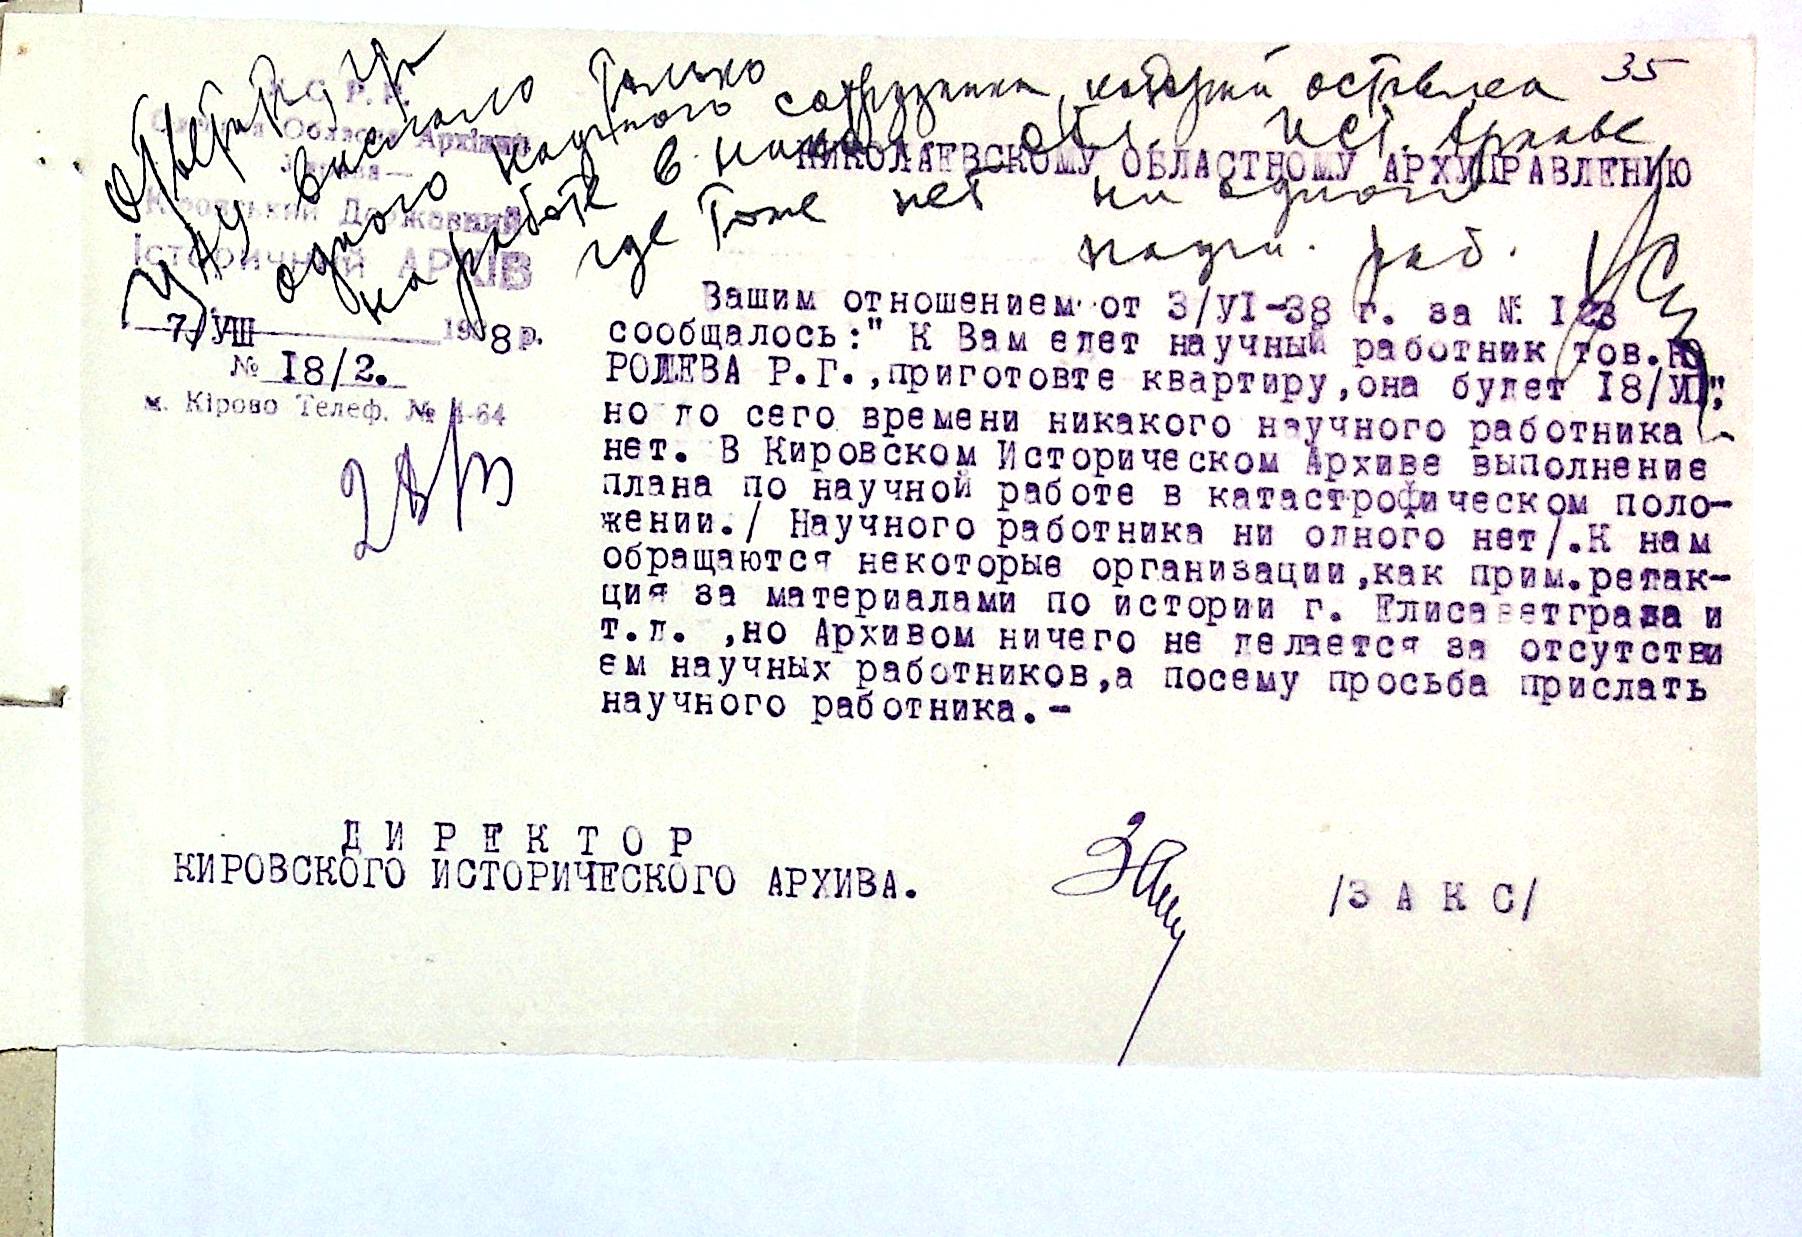 35
Ответить что
ЦАУ выслало только
одного научного сотрудника, который остался
на работе в Никол. обл. ист. Архиве
где тоже нет ни одного
научн. раб.
У.С.Р.Р.
Обласне Архівне
Кіровський Державний
Історичний АРХІВ
7/УШ 1938 р.
№ І8/2.
м. Кірово Телеф. № 4-64
НИКОЛАЕВСКОМУ ОБЛАСТНОМУ АРХУПРАВЛЕНИЮ
Вашим отношением от 3/УІ-38 г. за № І28
сообщалось:" К Вам едет научный работник тов.КО
РОЛЕВА Р.Г.,приготовте квартиру,она будет І8/УІ",
но до сего времени никакого научного работника
нет. В Кировском Историческом Архиве выполнение
плана по научной работе в катастрофическом поло-
жении./ Научного работника ни одного нет/.К нам
обращаются некоторые организации,как прим.редак-
ция за материалами по истории г. Елисаветграда и
т.д. ,но Архивом ничего не делается за отсутстви
ем научных работников,а посему просьба прислать
научного работника.-
Д И Р Е К Т О Р
КИРОВСКОГО ИСТОРИЧЕСКОГО АРХИВА.
/З А К С/